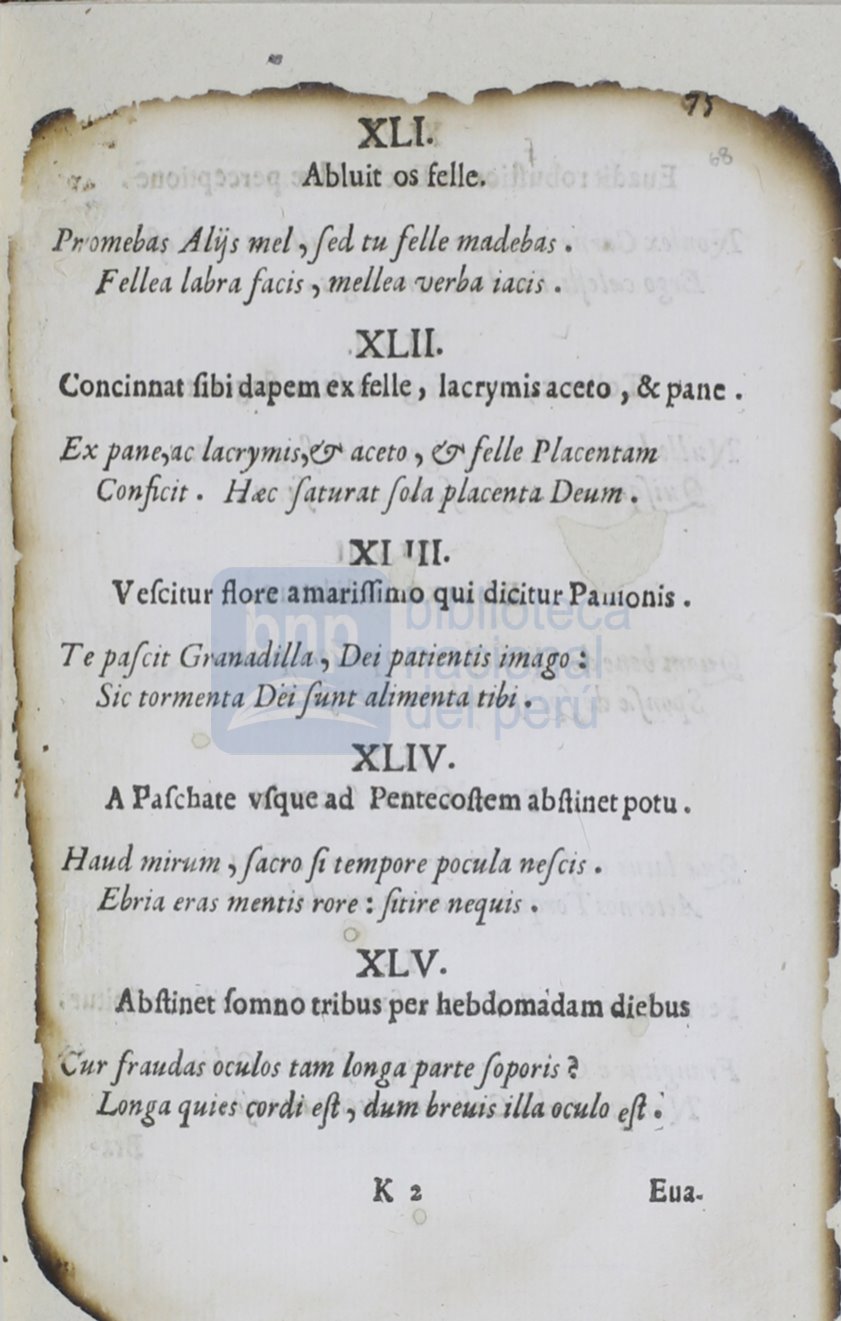 75
68
XLI.
Abluit os felle.
Promebas Alijs mel, ſed tu felle madebas.
Fellea labra facis, mellea verba iacis.
XLII.
Concinnat ſibi dapem ex felle, lacrymis aceto, & pane.
Ex pane, ac lacrymis, & aceto, & felle Placentam
Conficit. Hæc ſaturat ſola placenta Deum.
Veſcitur flore amariſſimo qui dicitur
Te paſcit Granadilla, Dei patientis imago:
Sic tormenta Dei ſunt alimenta tibi.
bnp biblioteca
nacional
del perú
XLIV.
A Paſchate vſque ad Pentecoſtem abſtinet potu.
Haud mirum, ſacro ſi tempore pocula neſcis.
Ebria eras mentis rore: ſitire nequis.
XLV.
Abſtinet ſomno tribus per hebdomadam diebus
Cur fraudas oculos tam longa parte ſoporis?
Longa quies cordi eſt, dum breuis illa oculo eſt.
K 2 Eua-